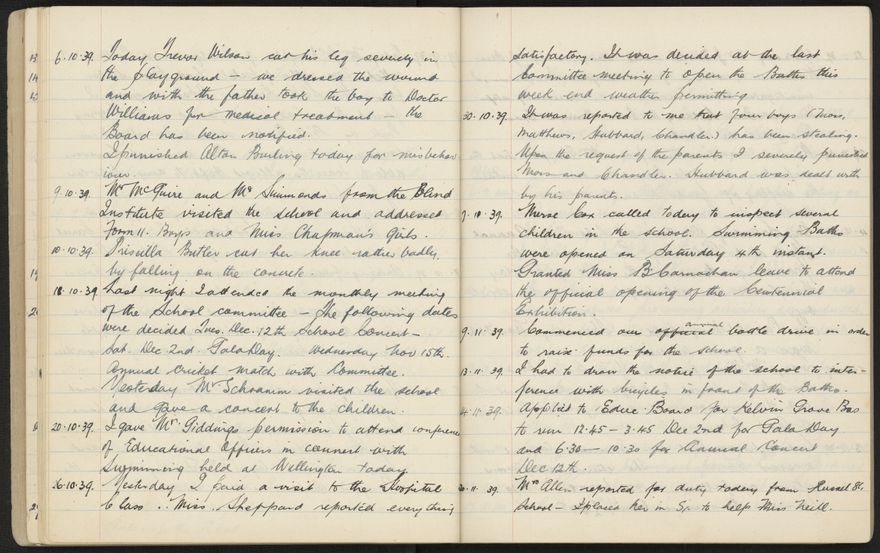 6.10.39. Today Trevor Wilson cut his leg severely in
the playground – we dressed the wound
and with the father took the boy to Doctor
Williams for medical treatment – the
Board has been notified.
I punished Alton Burling today for misbehav
iour.
9.10.39. Mr McGuire and Mr Simmonds from the Blind
Institute visited the school and addressed
Form II. Boys and Miss Chapman's Girls.
10.10.39. Priscilla Butler cut her knee rather badly
by falling on the concrete.
18.10.39 Last night I attended the monthly meeting
of the School committee – The following dates
were decided Tues. Dec. 12th School Concert –
Sat. Dec 2nd Gala Day. Wednesday Nov 15th.
Annual Cricket match with Committee.
Yesterday Mr Schramm visited the school
and gave a concert to the children.
20.10.39. I gave Mr Giddings permission to attend conference
of Educational Officers in connect with
Swimming held at Wellington today.
26.10.39. Yesterday I paid a visit to the Hospital
Class .. Miss. Sheppard reported everything
satisfactory. It was decided at the last
Committee meeting to open the Baths this
week end weather permitting
30.10.39. It was reported to me that four boys (Moss,
Matthews, Hubbard, Chandler.) has been stealing.
Upon the request of the parents I severely punished
Moss and Chandler. Hubbard was dealt with
by his parents.
Nurse Cox called today to inspect several
children in the school. Swimming Baths
were opened on Saturday 4th instant.
Granted Miss B. Carnachan leave to attend
the official opening of the Centennial
Exhibition.
9.11.39 Commenced our official annual bottle drive in order
to raise funds for the school.
13.11.39. I had to draw the notice of the school to inter-
ference with bicycles in front of the Baths.
14.11.39. Applied to Educ Board for Kelvin Grove Bus
to run 12.45 – 3.45 Dec 2nd for Gala Day
and 6.30 – 10.30 for Annual Concert
Dec 12th.
11.39. Mrs Allen reported for duty today from Russel St.
School – I placed her in S. to help Miss Neill.